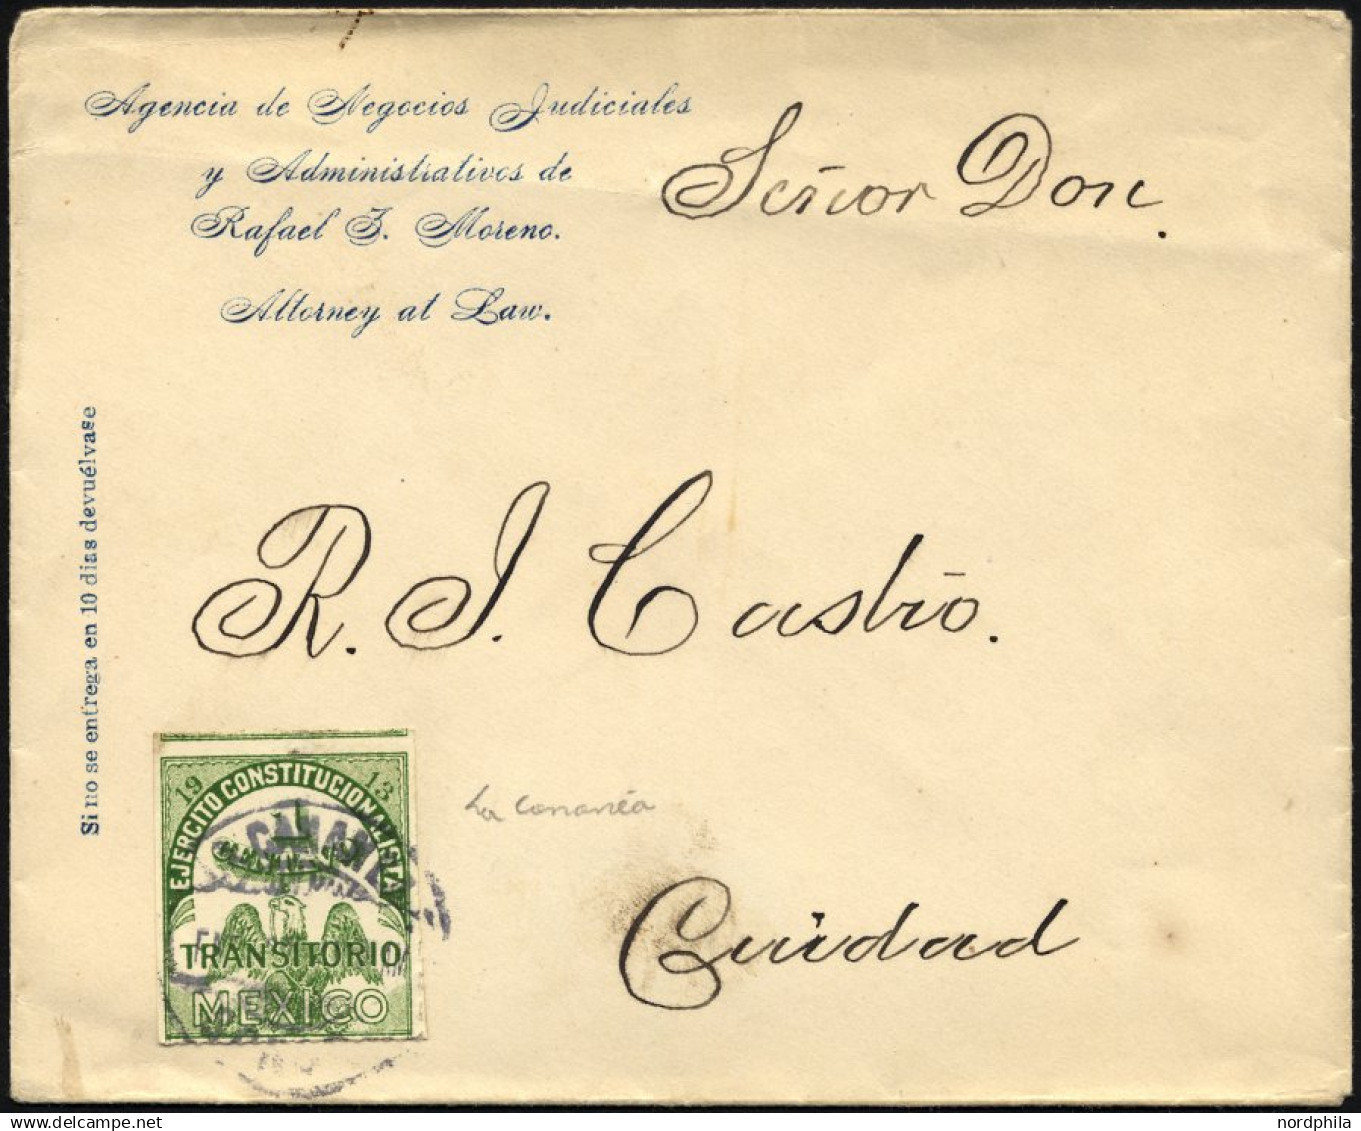 Agencia de Negocios Judiciales
y Administrativos de
Rafael J. Moreno.
Attorney at Law.
Señor Don.
Si no se entrega en 10 dias devuélvase
R. J. Castro.
19 13
EJERCITO CONSTITUCIONALISTA
1
CANANEA
TRANSITORIO
MEXICO
La Cananéa
Cuidad
nordphila